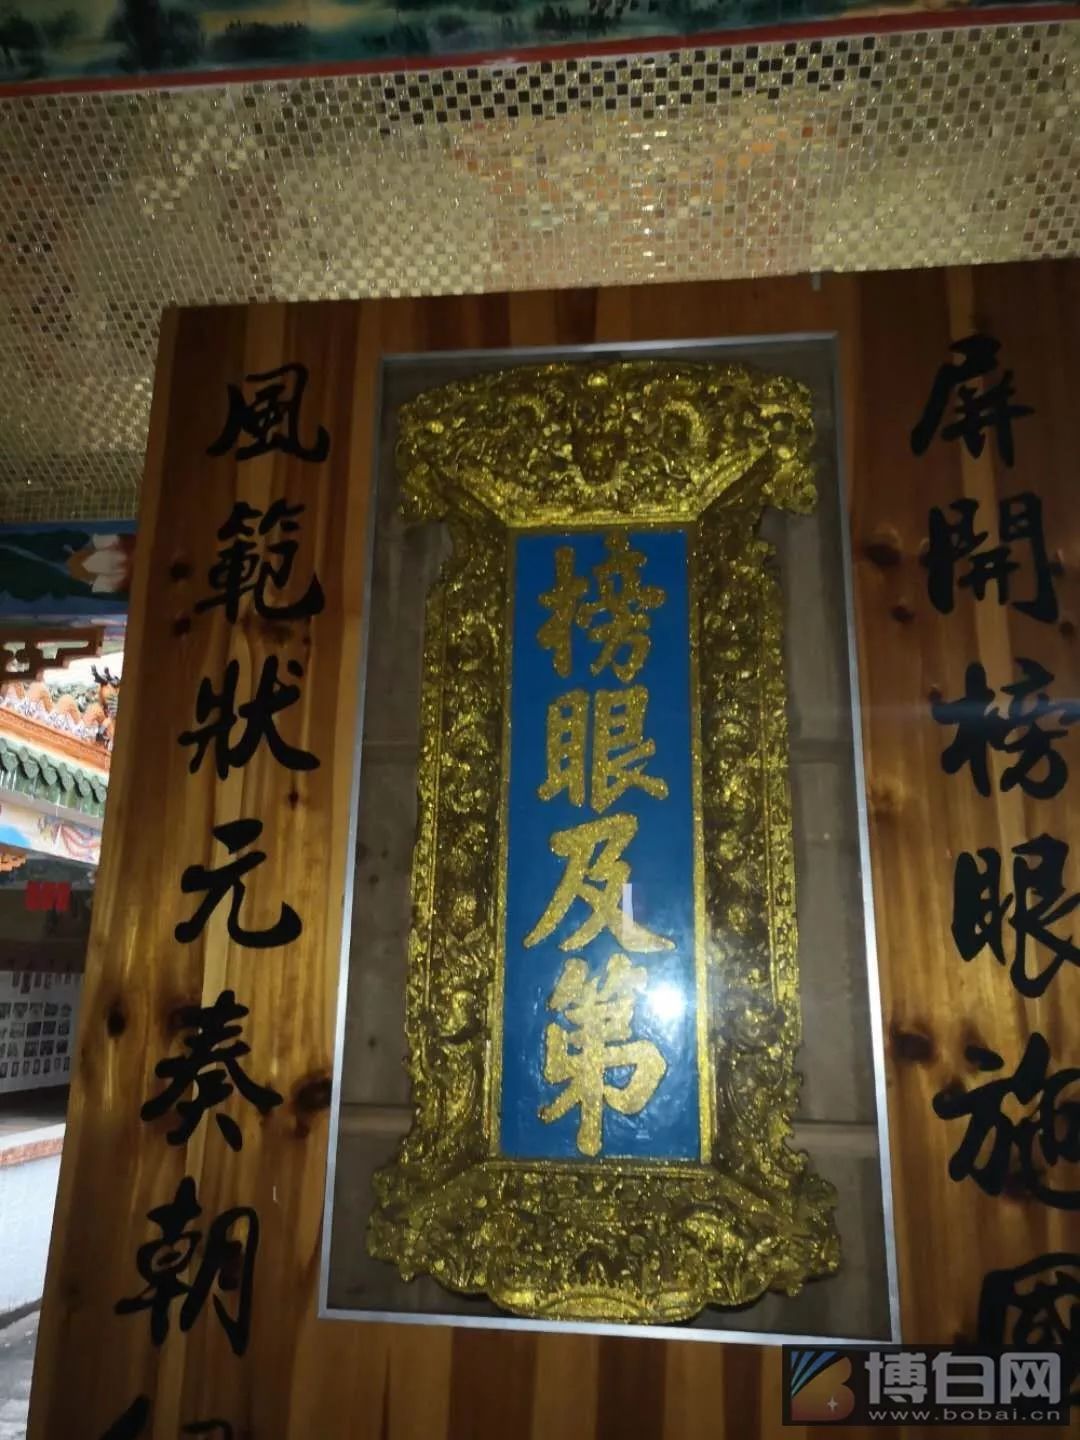 屏開榜眼施國
榜眼及第
風範狀元奏朝
博白网
www.bobai.cn